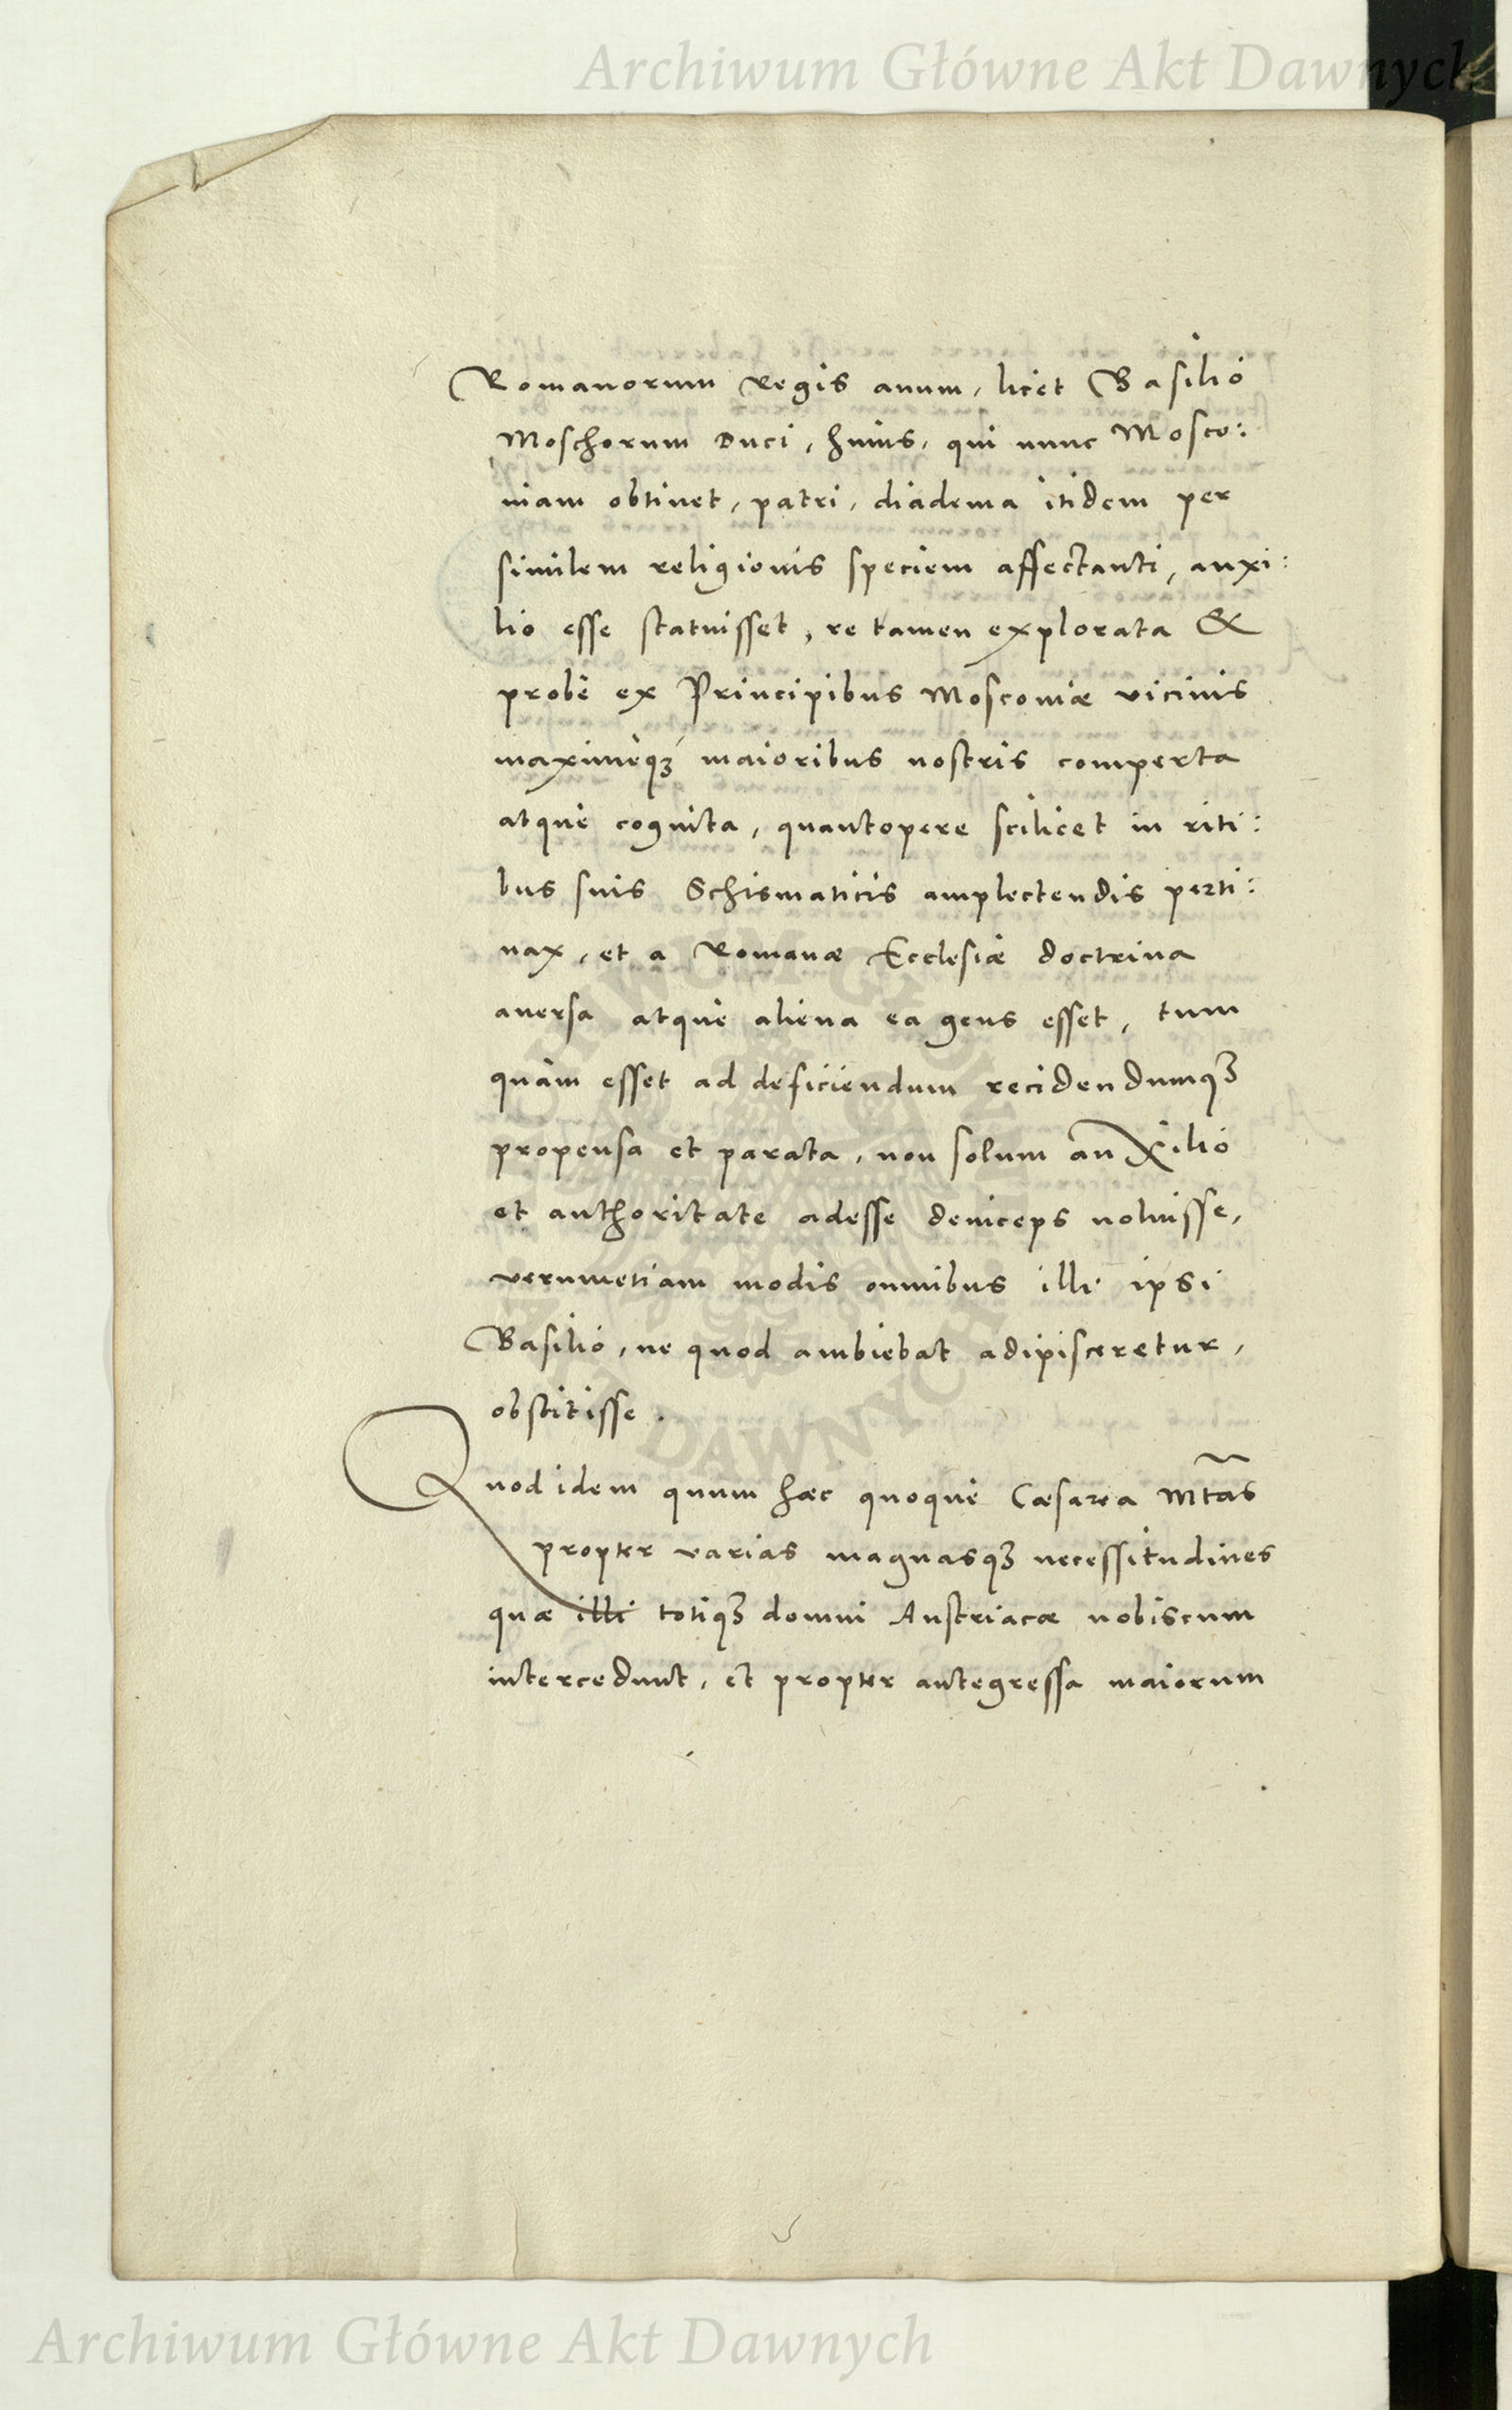 Archiwum Główne Akt Dawnych
Romanorum Regis auum, licet Basilio
Moschorum Duci, huius, qui nunc Mosco:
uiam obtinet, patri, diadema itidem per
similem religionis speciem affectanti, auxi:
lio esse statuisset, re tamen explorata &
probè ex Principibus Moscouiæ vicinis
maximèq; maioribus nostris comperta
atque cognita, quantopere scilicet in riti:
bus suis Schismaticis amplectendis perti:
nax, et a Romanæ Ecclesiæ doctrina
auersa atque aliena ea gens esset, tum
quàm esset ad deficiendum recidendumq;
propensa et parata, non solum auxilio
et authoritate adesse deinceps noluisse,
verumetiam modis omnibus illi ipsi
Basilio, ne quod ambiebat adipisceretur,
obstitisse.
Quod idem quum hæc quoque Cæsarea Mtas
propter varias magnasq; necessitudines
quæ illi totiq; domui Austriacæ nobiscum
intercedunt, et propter antegressa maiorum
Archiwum Główne Akt Dawnych